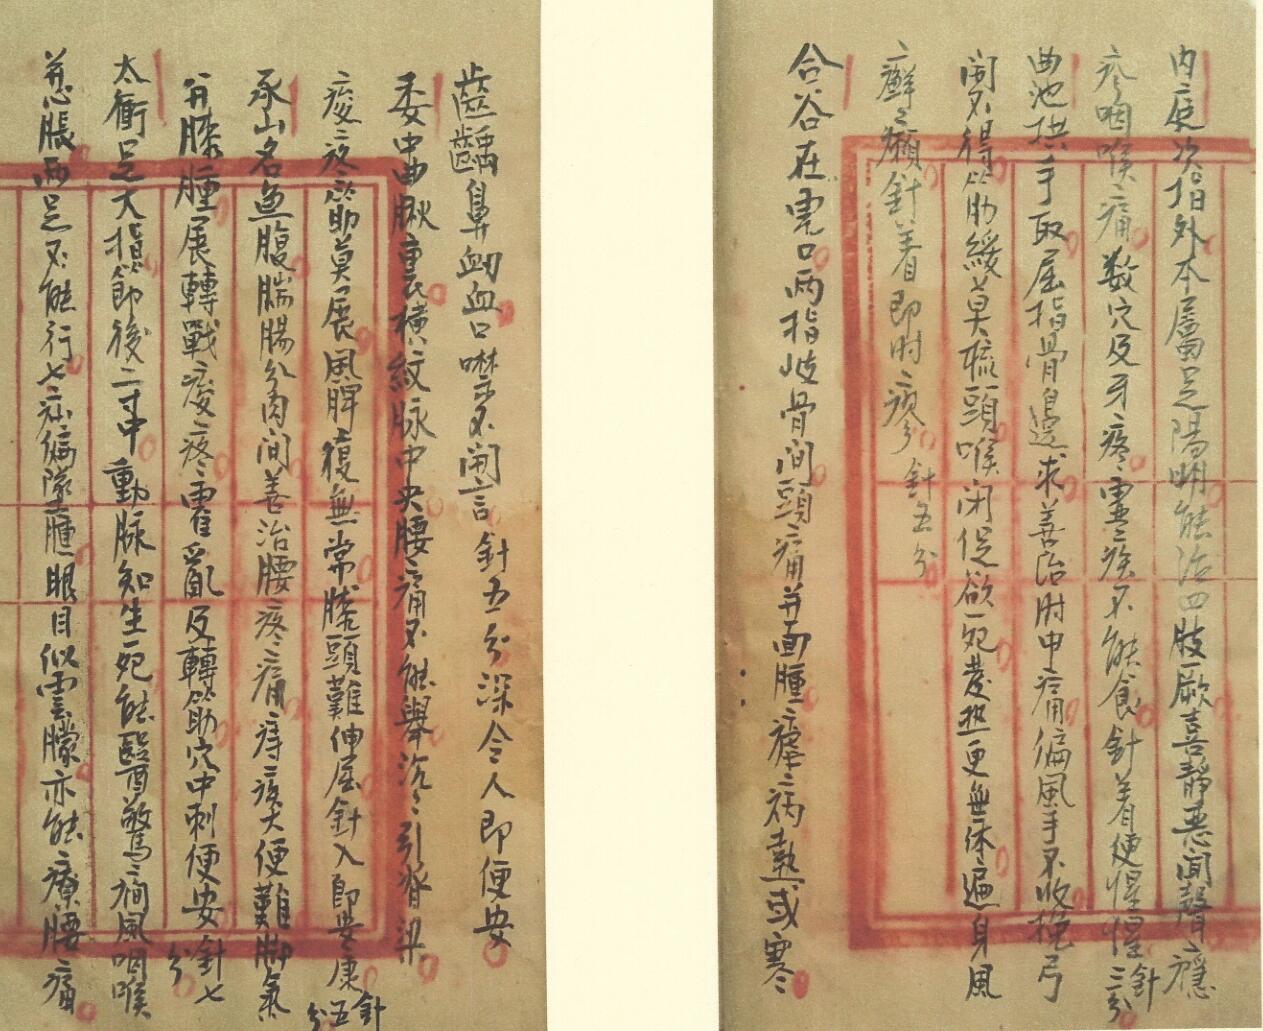 内庭次指外本屬足陽明能治四肢厥喜靜惡聞聲癮
疹咽喉痛数穴及牙疼虐疾不能食針着便惺惺針三分
曲池拱手取屈指骨邊求善治肘中痛偏風手不收挽弓
開不得筋緩莫梳頭喉闭促欲死發热更無休遍身風
癬癩針着即时瘳針五分
合谷在虎口两指歧骨间頭痛并面腫瘧病熱或寒
齒齲鼻衄血口噤不開言針五分深令人即便安
委中曲脷裏横紋脉中央腰痛不能舉沉沉引脊梁
痠疼筋莫展風痹復無常膝頭難伸屈針入即安康針五分
承山名魚腹腨腸分肉间善治腰疼痛痔疾大便難脚氣
并膝腫展轉戰痠疼霍亂及轉筋穴中刺便安針七分
太衝足大指節後二寸中動脉知生死能醫驚癇風咽喉
并心脹两足不能行七疝偏墜腫眼目似雲朦亦能療腰痛